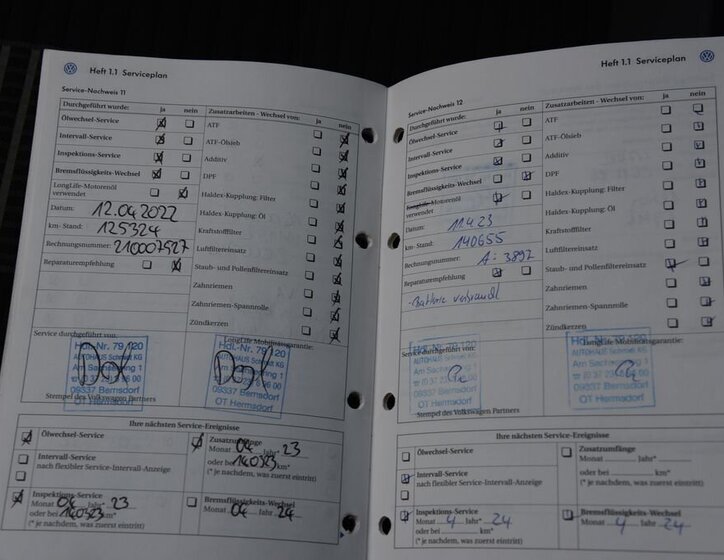 Heft 1.1 Serviceplan
Service-Nachweis 11
Durchgeführt wurde: ja nein
Ölwechsel-Service
Intervall-Service
Inspektions-Service
Bremsflüssigkeits-Wechsel
LongLife-Motorenöl
verwendet
Datum: 12.04.2022
km- Stand: 125324
Rechnungsnummer: 210007527
Reparaturempfehlung
Zusatzarbeiten - Wechsel von: ja nein
ATF
ATF-Ölsieb
Additiv
DPF
Haldex-Kupplung: Filter
Haldex-Kupplung: Öl
Kraftstofffilter
Luftfiltereinsatz
Staub- und Pollenfiltereinsatz
Zahnriemen
Zahnriemen-Spannrolle
Zündkerzen
Service durchgeführt von:
LongLife Mobilitätsgarantie:
Hdl.-Nr. 79 120
AUTOHAUS Schmidt KG
Am Sachsenring 1
09337 Bernsdorf
OT Hermsdorf
Hdl.-Nr. 79 120
AUTOHAUS Schmidt KG
Am Sachsenring 1
09337 Bernsdorf
OT Hermsdorf
Stempel des Volkswagen Partners
Ihre nächsten Service-Ereignisse
Ölwechsel-Service
Intervall-Service
nach flexibler Service-Intervall-Anzeige
Inspektions-Service
Monat 04 Jahr* 23
oder bei 140323 km*
(* je nachdem, was zuerst eintritt)
Zusatzumfänge
Monat 04 Jahr* 23
oder bei 140323 km*
(* je nachdem, was zuerst eintritt)
Bremsflüssigkeits-Wechsel
Monat 04 Jahr 24
Heft 1.1 Serviceplan
Service-Nachweis 12
Durchgeführt wurde: ja nein
Ölwechsel-Service
Intervall-Service
Inspektions-Service
Bremsflüssigkeits-Wechsel
LongLife-Motorenöl
verwendet
Datum: 11.4.23
km- Stand: 140655
Rechnungsnummer: A: 3897
Reparaturempfehlung
Zusatzarbeiten - Wechsel von: ja nein
ATF
ATF-Ölsieb
Additiv
DPF
Haldex-Kupplung: Filter
Haldex-Kupplung: Öl
Kraftstofffilter
Luftfiltereinsatz
Staub- und Pollenfiltereinsatz
Zahnriemen
Zahnriemen-Spannrolle
Zündkerzen
Service durchgeführt von:
LongLife Mobilitätsgarantie:
Hdl.-Nr. 79 120
AUTOHAUS Schmidt KG
Am Sachsenring 1
09337 Bernsdorf
OT Hermsdorf
Hdl.-Nr. 79 120
AUTOHAUS Schmidt KG
Am Sachsenring 1
09337 Bernsdorf
OT Hermsdorf
Stempel des Volkswagen Partners
Ihre nächsten Service-Ereignisse
Ölwechsel-Service
Intervall-Service
nach flexibler Service-Intervall-Anzeige
Inspektions-Service
Monat 4 Jahr* 24
oder bei km*
(* je nachdem, was zuerst eintritt)
Zusatzumfänge
Monat Jahr*
oder bei km*
(* je nachdem, was zuerst eintritt)
Bremsflüssigkeits-Wechsel
Monat 4 Jahr 24